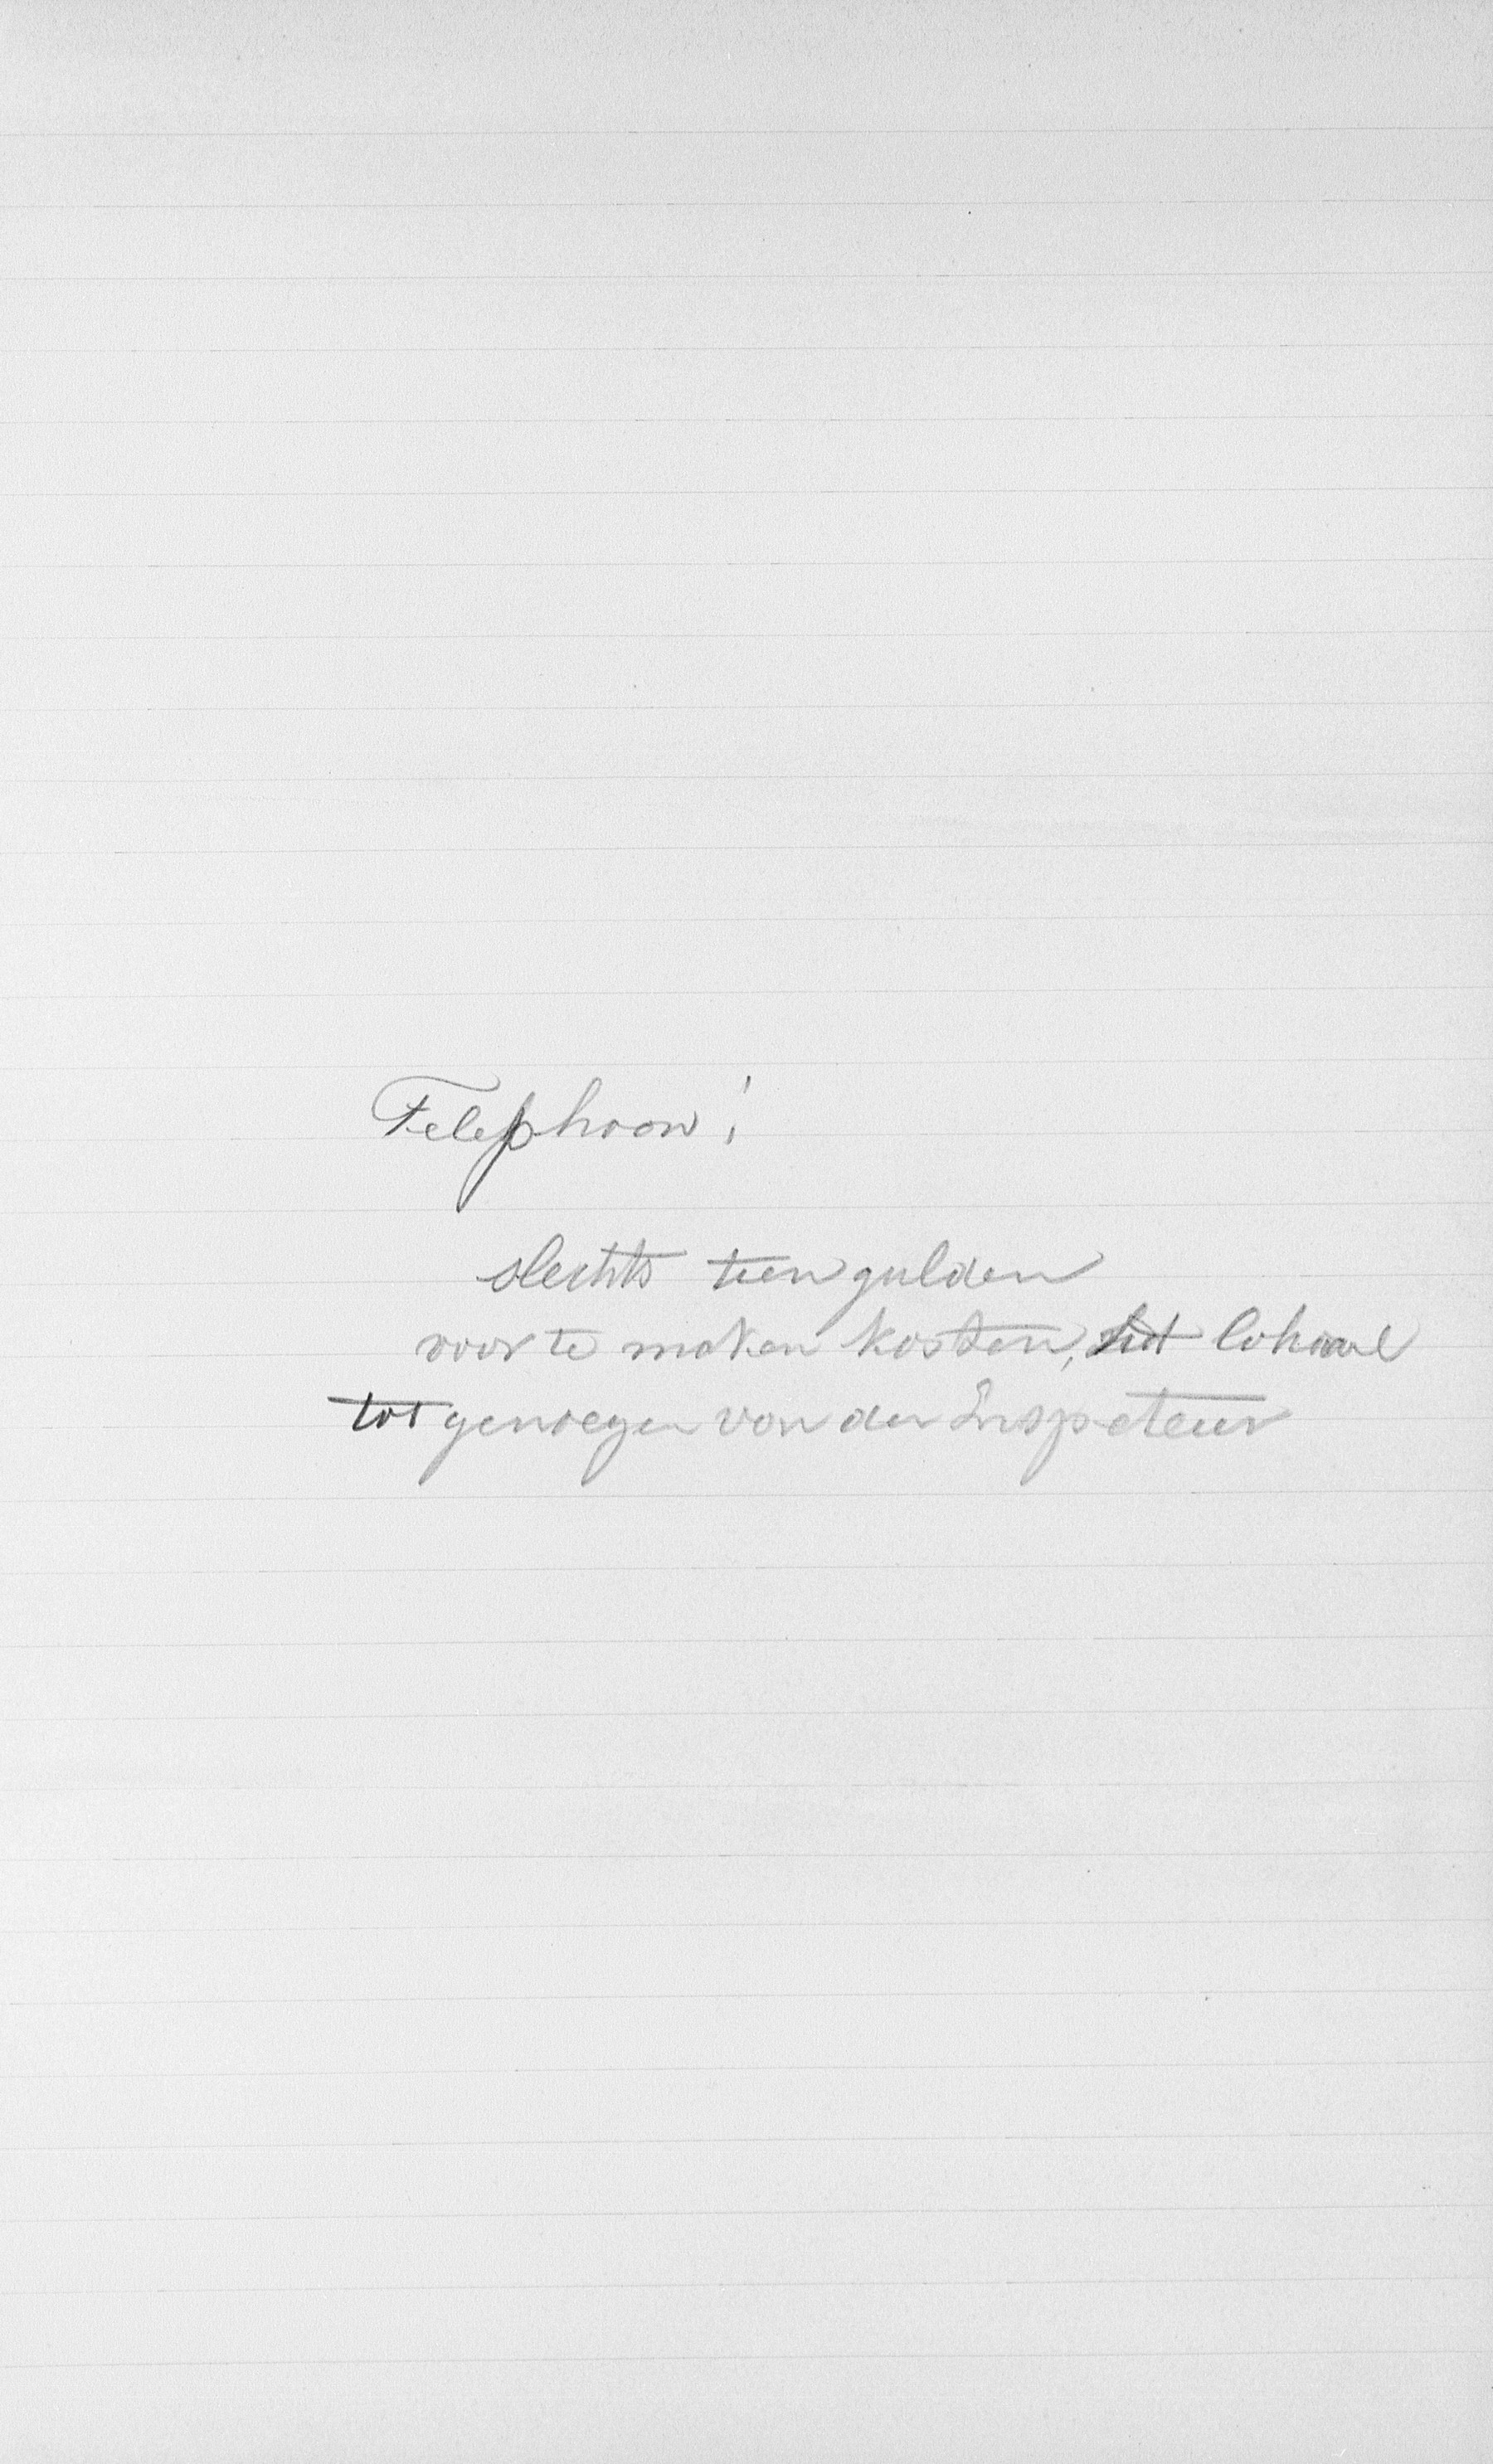 Telephoon!
slechts tien gulden
voor te maken kosten, het lokaal
tot genoegen van den Inspeteur